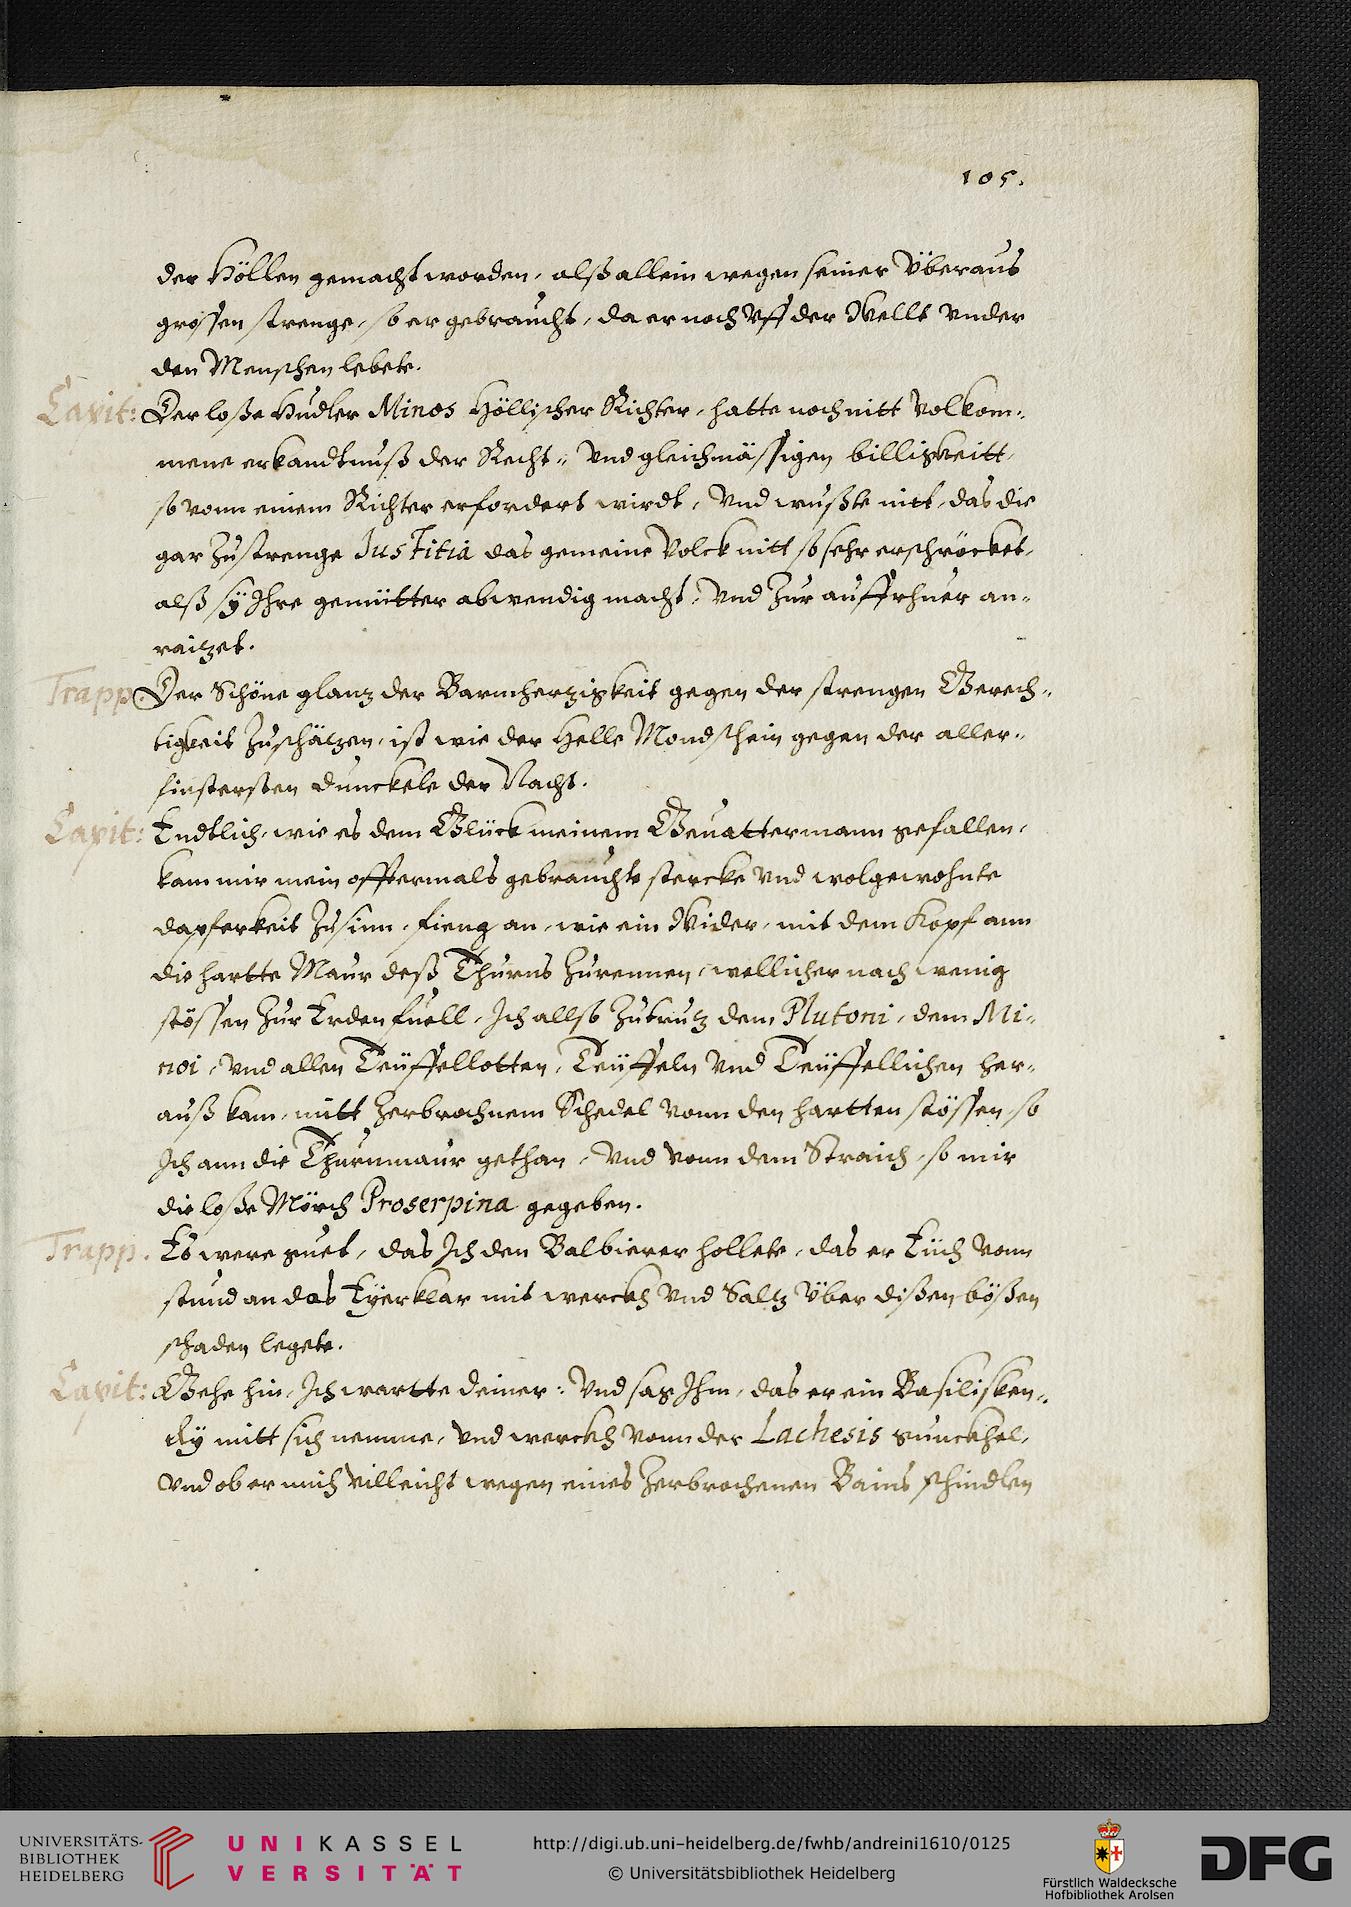 105.
der Höllen gemacht worden, alß allein wegen seiner Überaus
grossen strenge, so er gebraucht, da er noch Vff der Wellt Vnder
den Menschen lebete.
Capit: Der loße Hudler Minos Höllischer Richter, hatte noch nitt Volkom-
mene erkandtnuß der Recht- Vnd gleichmässigen billigkeitt,
so vonn einem Richter erfordert wirdt, Vnd wußte nitt, das die
gar Zu strenge Justitia das gemeine Volck nitt so sehr erschröcket,
alß sÿ Ihre gemütter abwendig macht, Vnd Zur auffrhuer an-
raitzet.
Trapp. Der Schöne glantz der Barmhertzigkeit gegen der strengen Gerech-
tigkeit Zuschätzen, ist wie der Helle Mondschein gegen der aller-
finstersten dunckele der Nacht.
Capit: Endtlich, wie es dem Glück meinem Geuattermann gefallen,
kam mir mein offtermals gebrauchte stercke Vnd wolgewohnte
dapferkeit Zu sinn, fieng an, wie ein Wider, mit dem Kopf ann
die hartte Maur deß Thurns Zurennen, wellicher nach wenig
stössen Zur Erden fuell, Ich allso Zu trutz dem Plutoni, dem Mi-
noi, Vnd allen Teüffellotten, Teüffeln Vnd Teüffellichen her-
auß kam, mitt Zerbrochnem Schedel Vonn den hartten stössen, so
Ich ann die Thurnmaur gethan, Vnd Vonn dem Straich, so mir
die loße Mörch Proserpina gegeben.
Trapp. Es were guet, das Ich den Balbierer hollete, das er Eüch Vonn
stund an das Eÿerklar mit werckh Vnd Saltz Über dißen bößen
schaden legete.
Capit: Gehe hin, Ich wartte deiner: Vnd sag Ihm, das er ein Basilisken-
Aÿ mitt sich nemme, Vnd werckh Vonn der Lachesis gunckhel,
Vnd ob er mich Villeicht wegen eines Zerbrochenen Bains schindlen
UNIVERSITÄTS-
BIBLIOTHEK
HEIDELBERG
UNIKASSEL
VERSITÄT
http://digi.ub.uni-heidelberg.de/fwhb/andreini1610/0125
© Universitätsbibliothek Heidelberg
Fürstlich Waldecksche
Hofbibliothek Arolsen
DFG